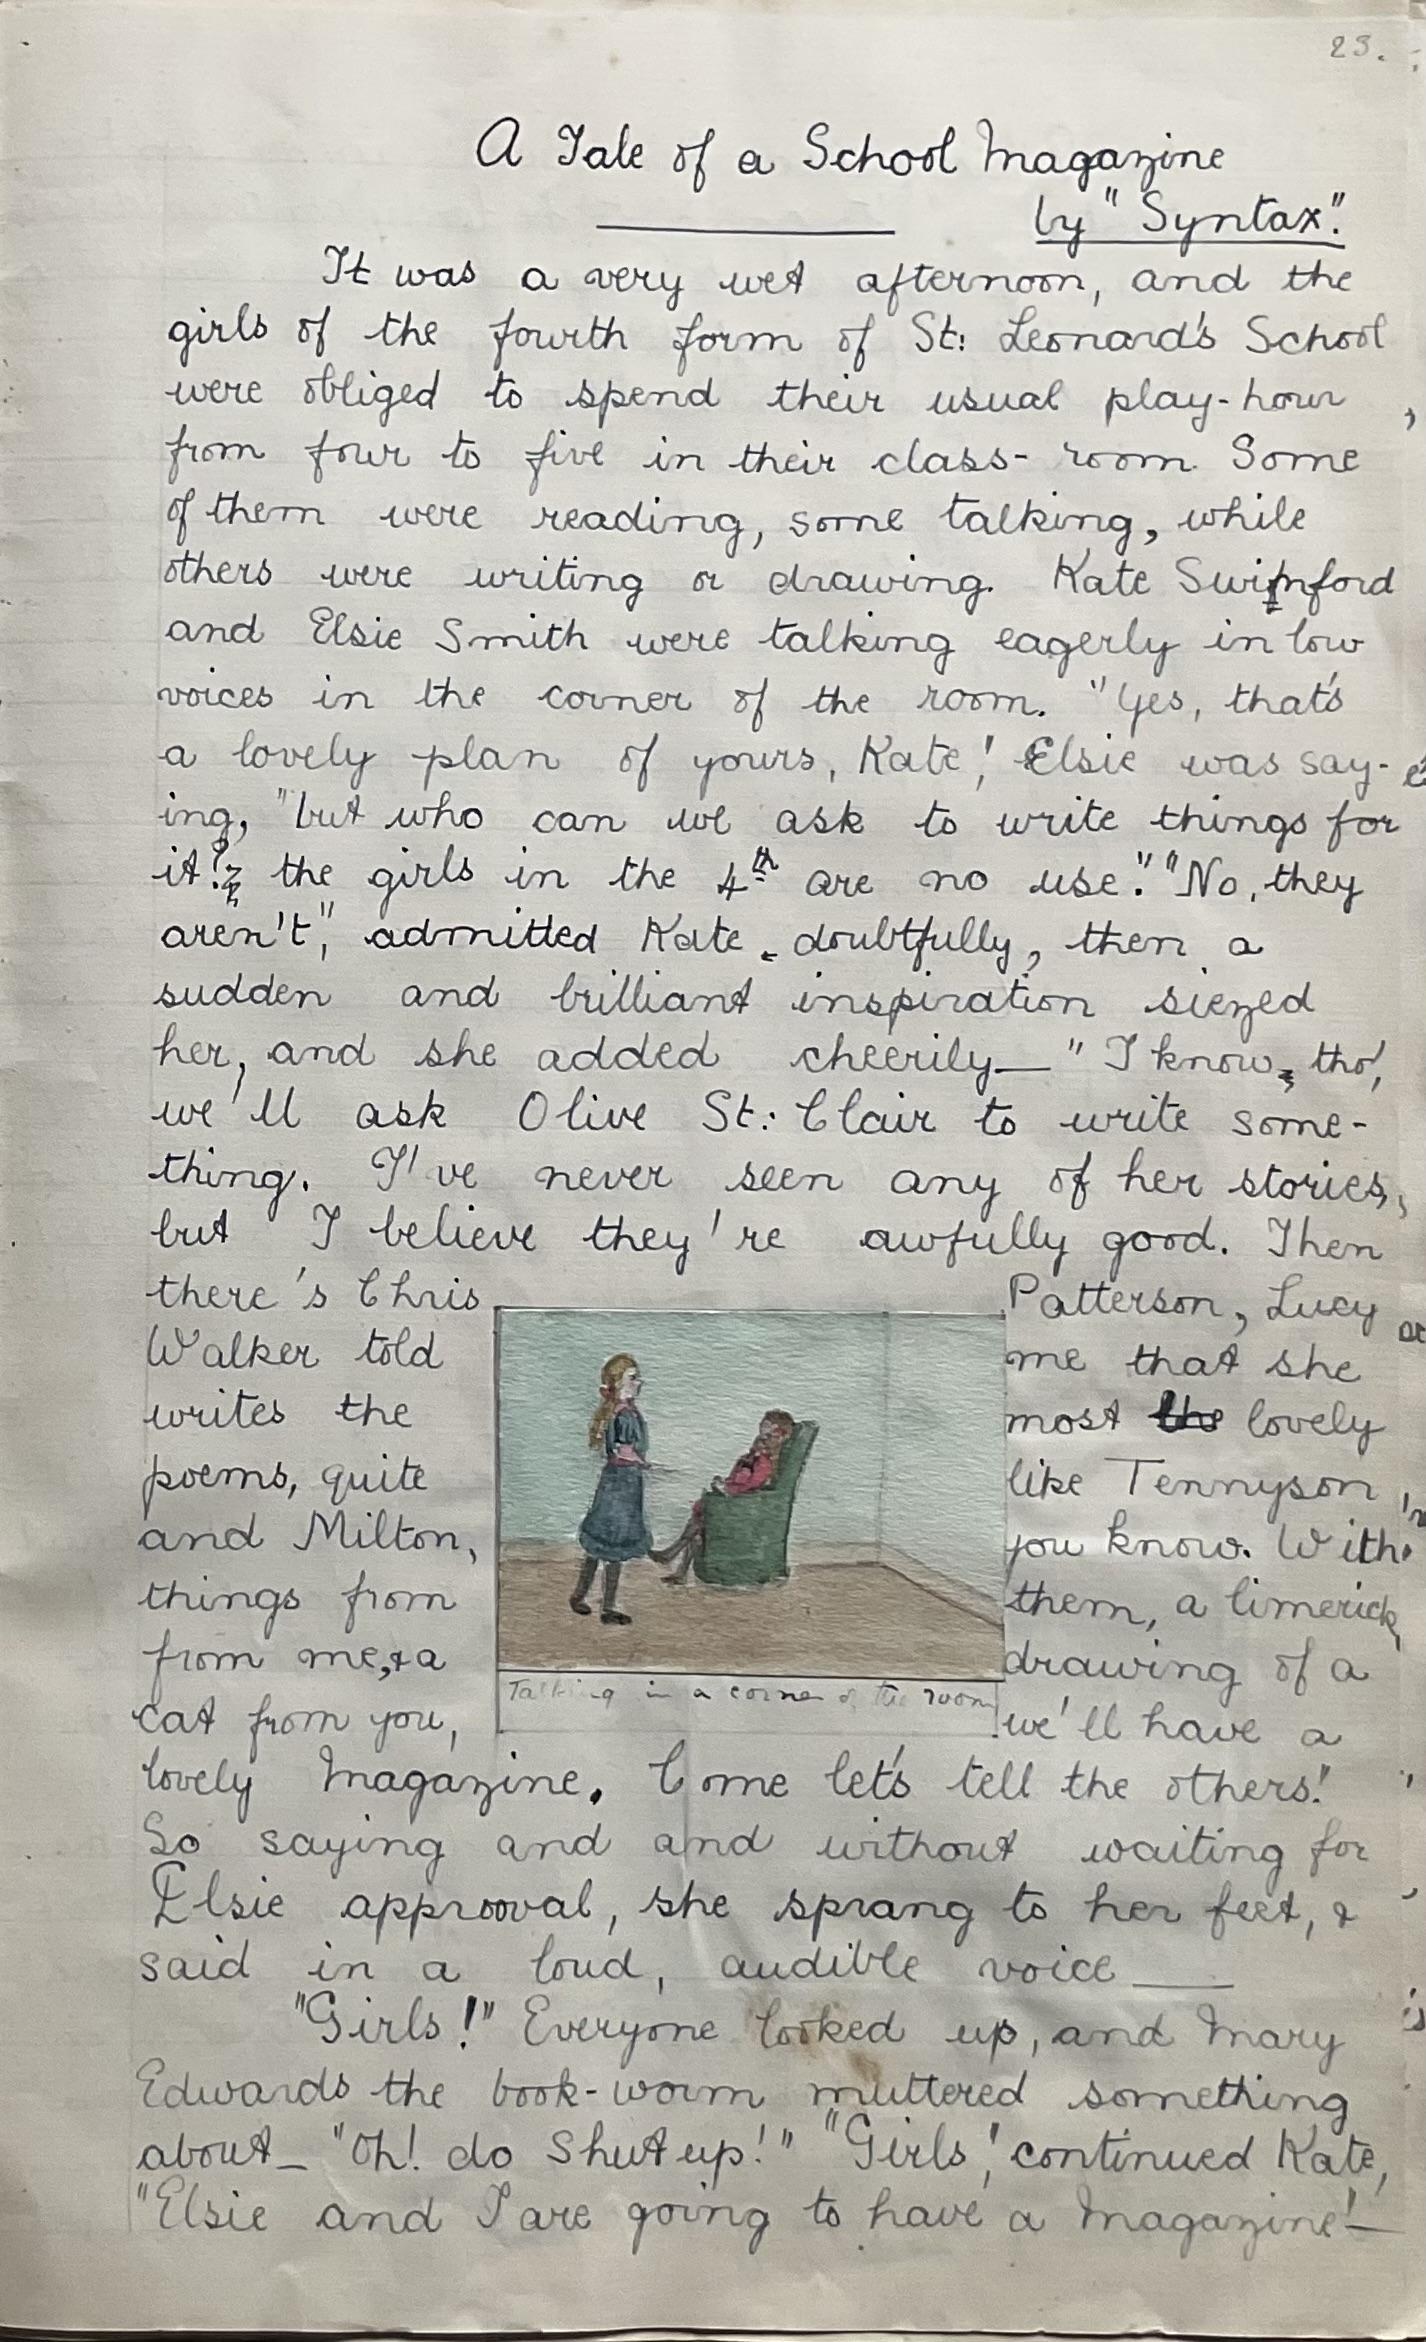 23.
A Tale of a School Magazine
by "Syntax".
It was a very wet afternoon, and the
girls of the fourth form of St: Leonard's School
were obliged to spend their usual play-hour
from four to five in their class-room. Some
of them were reading, some talking, while
others were writing or drawing. Kate Swinford
and Elsie Smith were talking eagerly in low
voices in the corner of the room. "Yes, that's
a lovely plan of yours, Kate,' Elsie was say-
ing, "but who can we ask to write things for
it? the girls in the 4th are no use." "No, they
aren't," admitted Kate doubtfully, then a
sudden and brilliant inspiration siezed
her, and she added cheerily— "I know, tho',
we'll ask Olive St: Clair to write some-
thing. I've never seen any of her stories,
but I believe they're awfully good. Then
there's Chris Patterson, Lucy
Walker told me that she
writes the most the lovely
poems, quite like Tennyson
and Milton, you know. With
things from them, a limerick
from me, & a drawing of a
cat from you, we'll have a
Talking in a corner of the room
lovely Magazine. Come let's tell the others!"
So saying and and without waiting for
Elsie approoval, she sprang to her feet, &
said in a loud, audible voice —
"Girls!" Everyone looked up, and Mary
Edwards the book-worm muttered something
about— "Oh! do shut up!" "Girls,' continued Kate,
"Elsie and I are going to have a Magazine!—